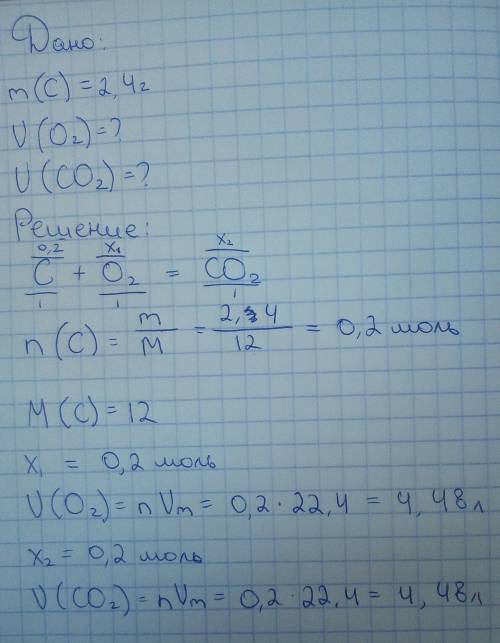 Дано:
m(C) = 2,4г
V(O₂) = ?
V(CO₂) = ?
Решение:
0,2 x₁ x₂
C + O₂ = CO₂
1 1 1
n(C) = m/M = 2,4/12 = 0,2 моль
M(C) = 12
x₁ = 0,2 моль
V(O₂) = nVm = 0,2 · 22,4 = 4,48л
x₂ = 0,2 моль
V(CO₂) = nVm = 0,2 · 22,4 = 4,48л